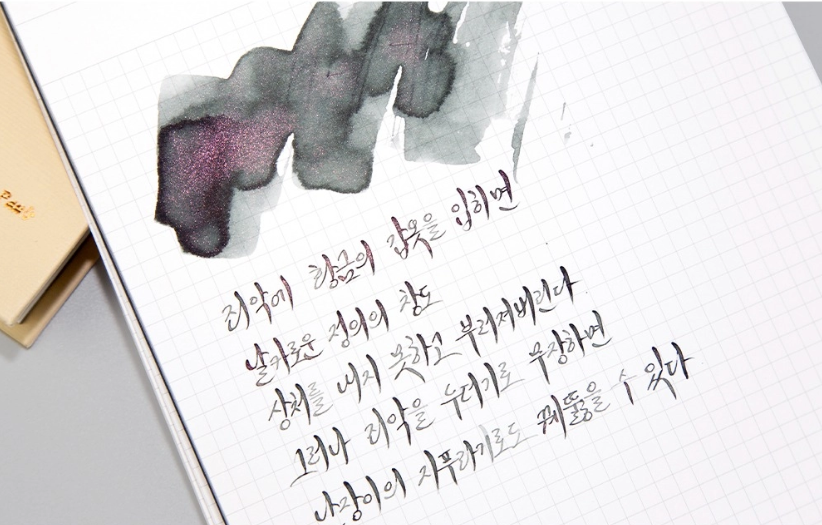 죄악에 황금의 갑옷을 입히면
날카로운 정의의 창도
상처를 내지 못하고 부러져버린다
그러나 죄악을 누더기로 무장하면
난장이의 지푸라기로도 꿰뚫을 수 있다